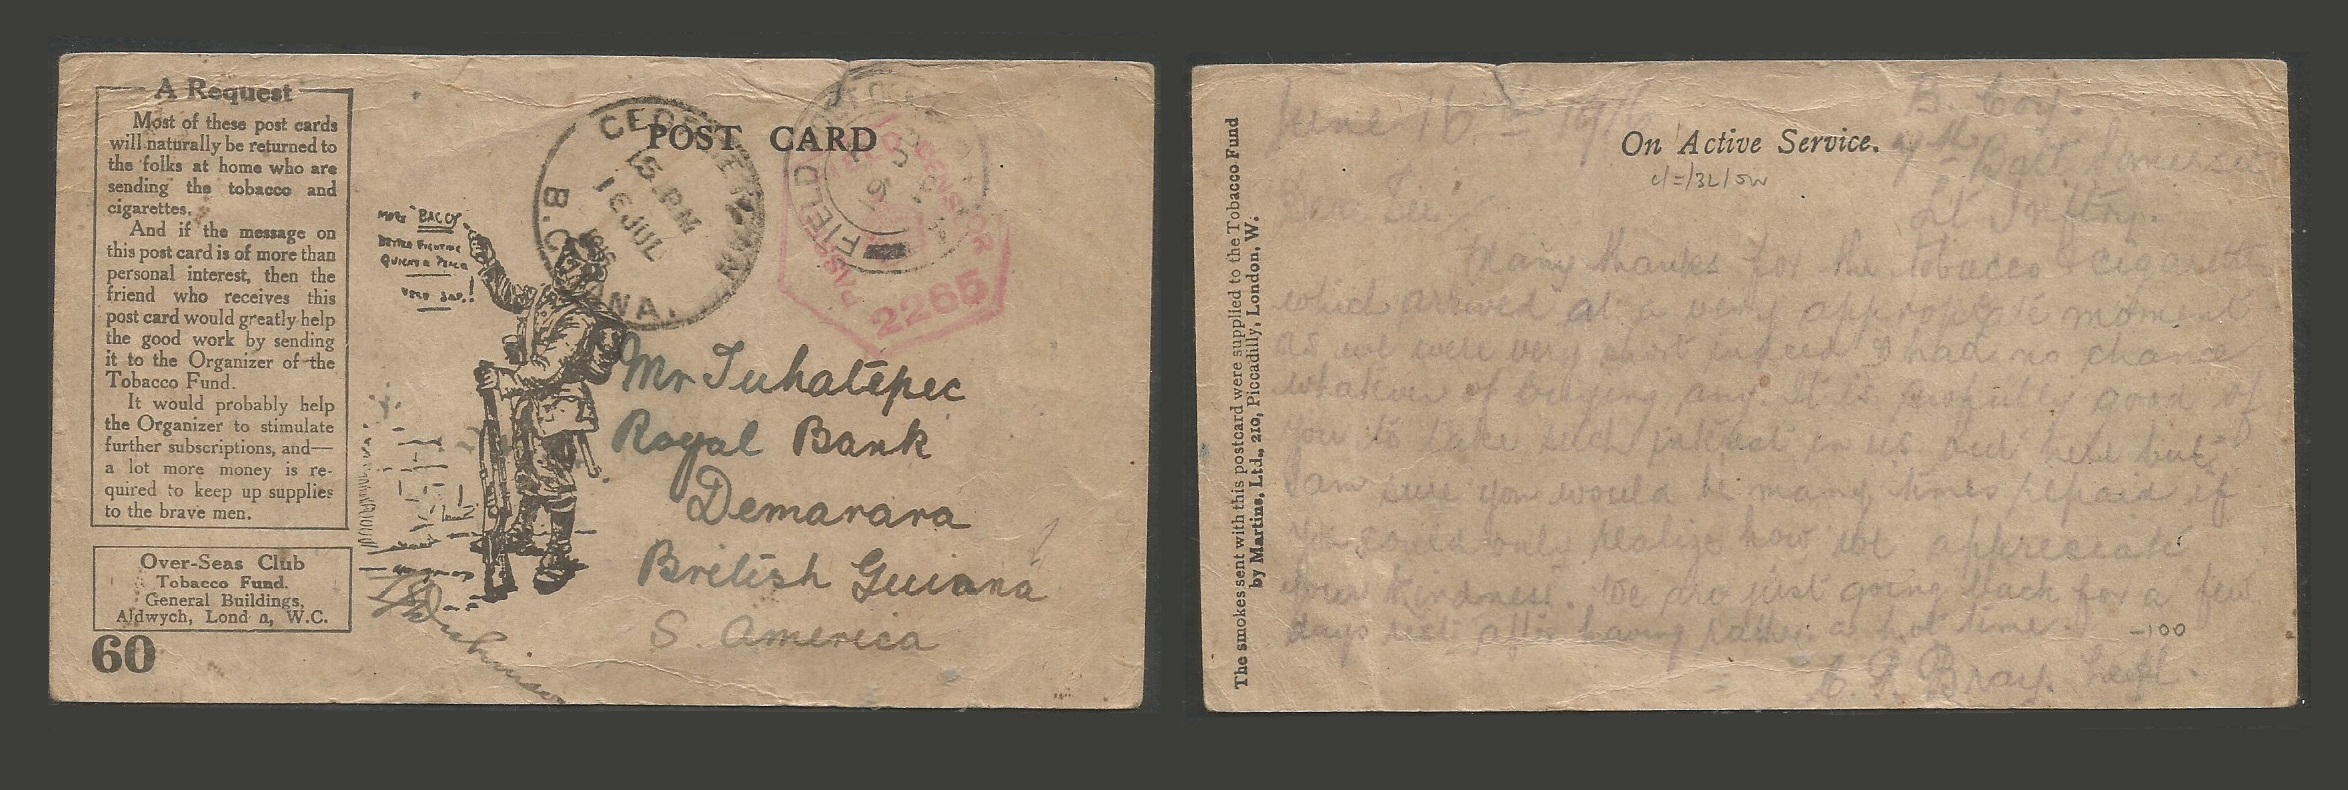 A Request
Most of these post cards
will naturally be returned to
the folks at home who are
sending the tobacco and
cigarettes.
And if the message on
this post card is of more than
personal interest, then the
friend who receives this
post card would greatly help
the good work by sending
it to the Organizer of the
Tobacco Fund.
It would probably help
the Organizer to stimulate
further subscriptions, and—
a lot more money is re-
quired to keep up supplies
to the brave men.
Over-Seas Club
Tobacco Fund.
General Buildings,
Aldwych, Lond n, W.C.
60
MORE "BACCY"
BETTER FIGHTING
QUICKER PEACE
POST CARD
5.PM
16 JUL
B. GUIANA.
FIELD POST OFFICE
PASSED CENSOR
2265
Mr
Royal Bank
Demarara
British Guiana
S. America
The smokes sent with this postcard were supplied to the Tobacco Fund
by Martins, Ltd., 210, Piccadilly, London, W.
On Active Service.
June 16th 1916
B. Coy.
7th Batt Somerset
Lt Infty.
Dear
Many thanks for the tobacco & cigarettes
which arrived at a very moment
as we were very short indeed & had no chance
whatever of buying any. It is awfully good of
you to take such interest in us out here but
I am sure you would be many times repaid if
you could only realise how we appreciate
your kindness. We are just going back for a few
days rest after having rather a hot time.
-100
Bray. Lieut.